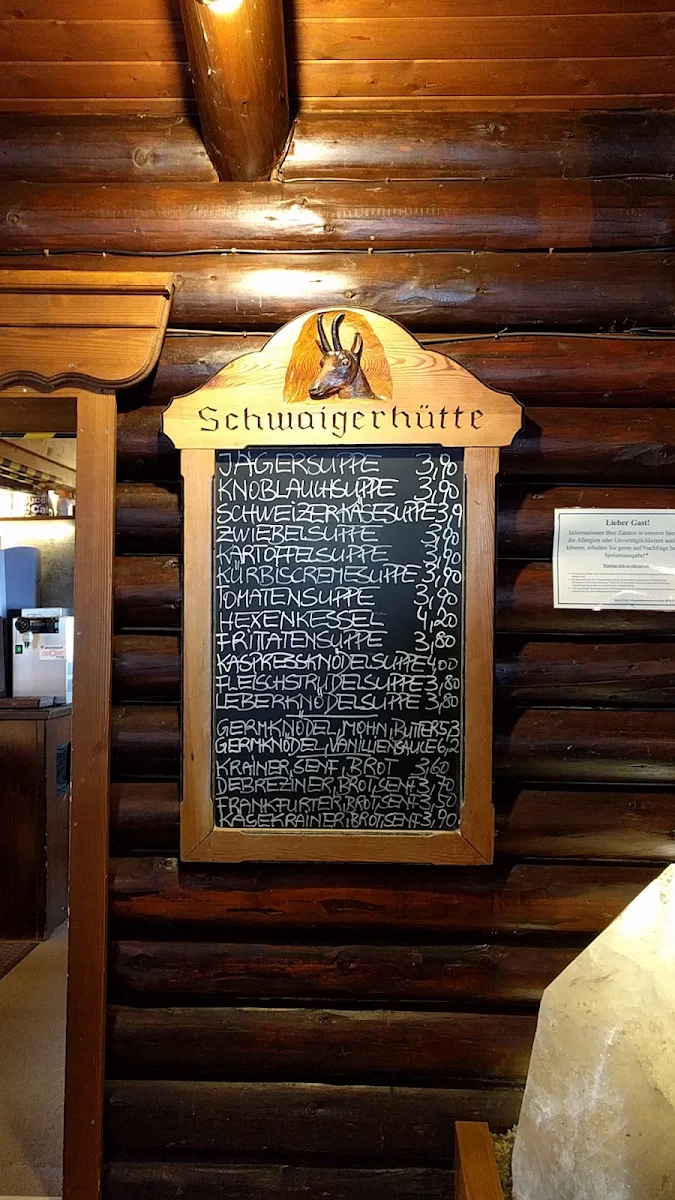 Schwaigerhütte
JÄGERSUPPE 3,90
KNOBLAUCHSUPPE 3,90
SCHWEIZERKÄSESUPPE 3,9
ZWIEBELSUPPE 3,90
KARTOFFELSUPPE 3,90
KÜRBISCREMESUPPE 3,90
TOMATENSUPPE 3,90
HEXENKESSEL 4,20
FRITTATENSUPPE 3,80
KASPRESSKNÖDELSUPPE 4,00
FLEISCHSTRUDELSUPPE 3,80
LEBERKNÖDELSUPPE 3,80
GERMKNÖDEL, MOHN, BUTTER 5,3
GERMKNÖDEL, VANILLIENSAUCE 6,2
KRAINER, SENF, BROT 3,60
DEBREZINER, BROT, SENF 3,70
FRANKFURTER, BROT, SENF 3,50
KÄSEKRAINER, BROT, SENF 3,90
Lieber Gast!
Informationen über Zutaten in unseren Spei
die Allergien oder Unverträglichkeiten ausl
können, erhalten Sie gerne auf Nachfrage be
Speisenausgabe!*